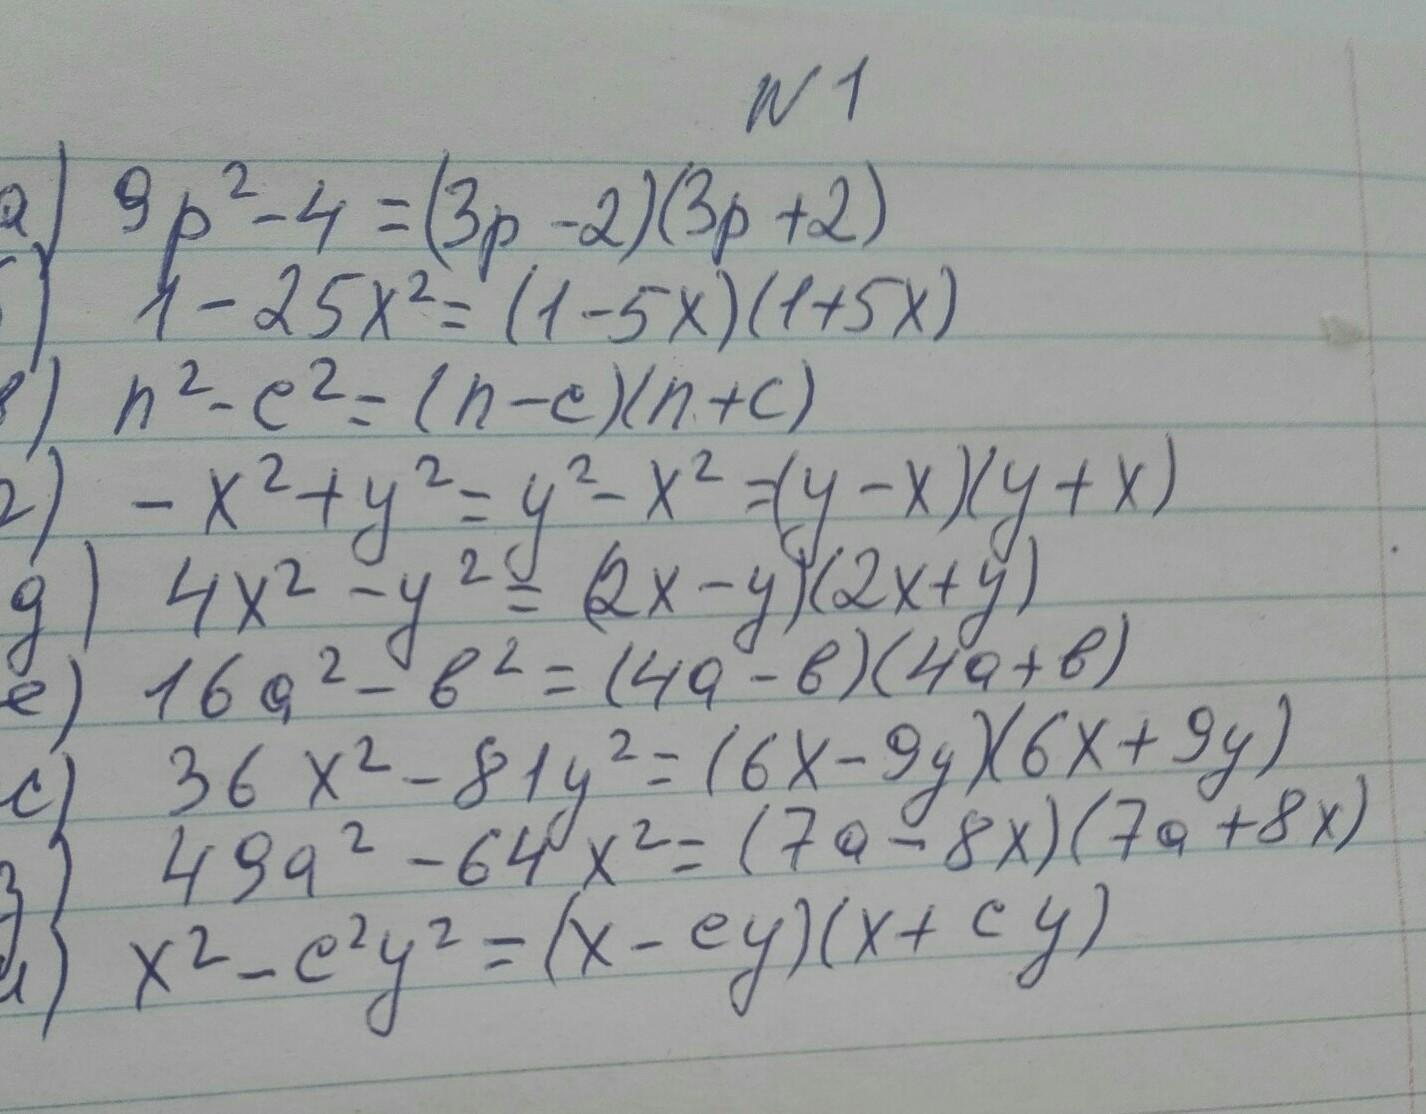 N 1
а) 9p² - 4 = (3p - 2)(3p + 2)
б) 1 - 25x² = (1 - 5x)(1 + 5x)
в) n² - c² = (n - c)(n + c)
г) - x² + y² = y² - x² = (y - x)(y + x)
д) 4x² - y² = (2x - y)(2x + y)
е) 16a² - b² = (4a - b)(4a + b)
с) 36x² - 81y² = (6x - 9y)(6x + 9y)
з) 49a² - 64x² = (7a - 8x)(7a + 8x)
и) x² - c²y² = (x - cy)(x + cy)